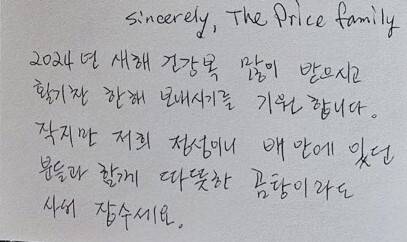 sincerely, The Price family
2024년 새해 건강복 많이 받으시고
활기찬 한해 보내시기를 기원 합니다.
작지만 저희 정성이니 배 안에 있던
분들과 함께 따뜻한 곰탕이라도
사서 잡수세요.